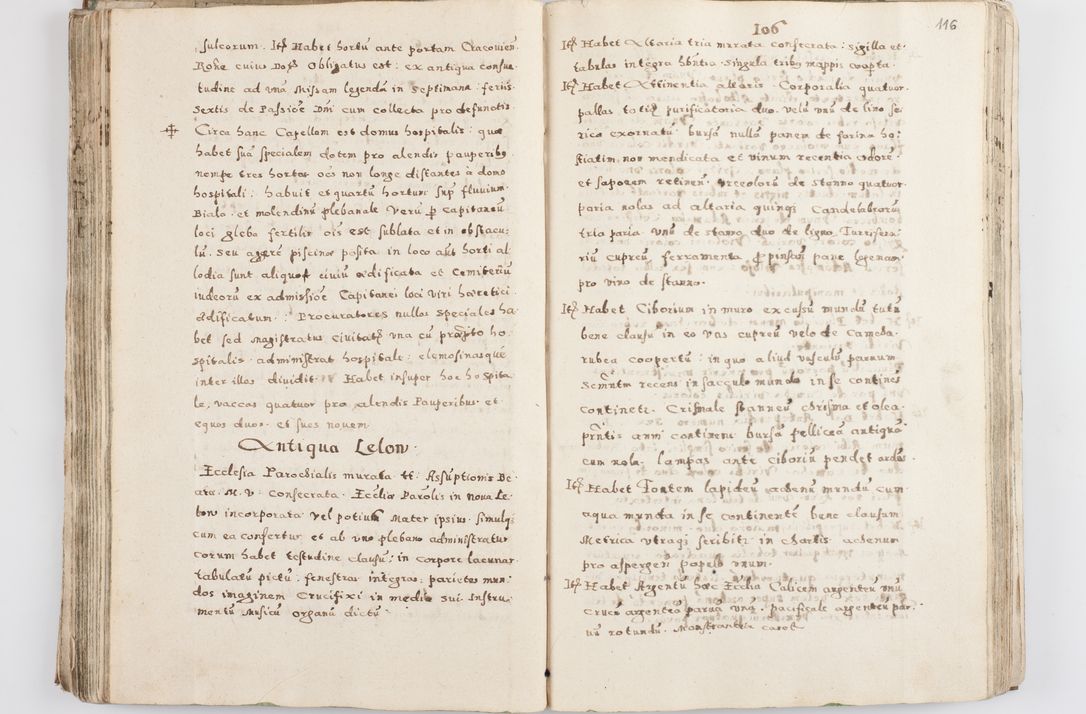 sulcorum. Itȩ Habet hortū ante portam Cracovien̄
Rohe cuius Dos Obligatus est: ex antiqua consue
tudine ad vnā Missam legendā in septimana feriis
sextis de Passioē Dn̄i cum collecta pro defunctis
Circa hanc Capellam est domus hospitalis: quæ
habet suā specialem dotem pro alendis pauperibꝰ
nempe tres hortos oēs non longe distantes à domo
hospitali: habuit et quartū hortum sup̄ fluvium
Biala. et molendinū plebanale Verū ꝑ Capitaneū
loci gleba fertilis oīs est sublata et in obstacu:
lū. seu aggerē piscinæ posita in loco aūt horti al
lodia sunt aliquot civiū ædificata et Cemiteriū
Iudeorū ex admissioē Capitanei loci viri hæretici
ædificatum: Procuratores nullos speciales ha
bet sed Magistratus Civitatȩ vna cū præpto ho
spitalis administrat hospitale: elemosinasque
inter illos dividit. Habet insuper hoc hospita
le, vaccas quatuor pro alendis Pauperibus et
equos duos. et sues novem
Antiqua Lelow.
Ecclesia Parochialis murata tt: Assūptionis Be
atæ. M. V: Consecrata. Ecclīæ Parōlis in nova Le
low incorporata vel potius Mater ipsius. simulqȝ
cum ea confertur et ab vno plebano administratur
Corum habet testudine clausū: in corpore lacunar
tabulatū pictū: fenestras integras: parietes mun
dos imaginem Crucifixi in medio sui Instru
mentū Musicū organū dictū

106
116
Itȩ Habet Altaria tria murata consecrata: sigilla et
tabulas integra hn̄tia. singula tribꝰ mappis coop̄ta
Itȩ Habet Attinentia altaris. Corporalia quatuor.
pallas totidē purificatoria duo. velū vnū de lino se
rico exornatū bursā nullā panem de farina ho:
stiatim non mendicata et vinum recentia odorē
et saporem retinen̄. vrceolorū de stanno quatuor
paria nolas ad altaria quinqȝ Candelabrorū
tria paria vnū de stanno duo de ligno Turrifera
riū cupreū ferramenta ꝑ pinsen̄ pane lagenam
pro vino de stanno.
Itȩ Habet Ciborium in muro excussū mundū tutū
bene clausū in eo vas cupreū velo de Camcha
rubea coopertū: in quo aliud vasculū parvum
Scmn̄tm recens in sacculo mundo in se continet
continetꝛ. Crismale stanneū chrisma et olea
pn̄tis anni continens bursā pelliceā antiquā
cum nola. lampas ante ciboriū pendet ardēs
Itȩ Habet Fontem lapideū ahenū mundū cum
aqua munda in se continentē bene clausam
Metrica vtraqȝ scribitꝛ in chartis ahenum
pro aspergen̄ populo vnum
Itȩ Habet Argentū hæc Ecclīa Calicem argenteū vnū
Crucē argenteā parvā vnā. pacificale argenteū par
vū rotundū. Monstrantia caret